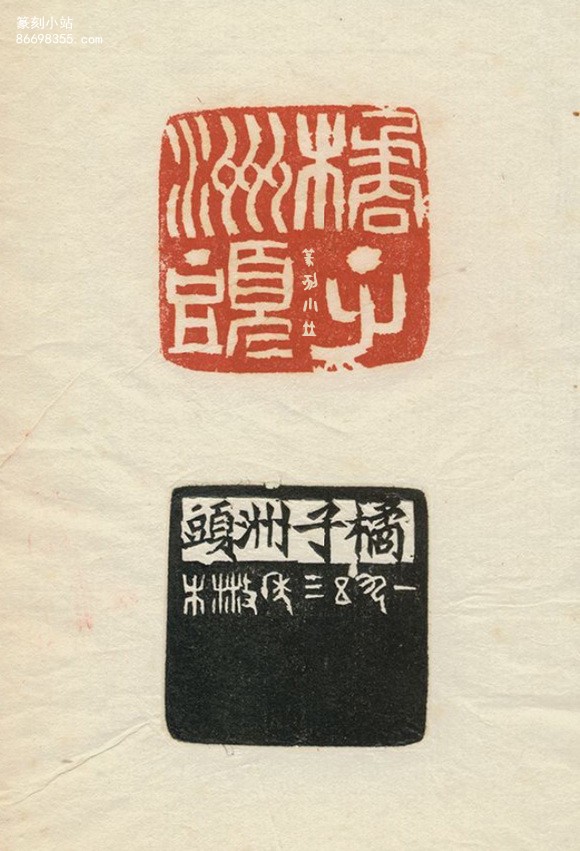 篆刻小站
86698355.com
橘子
洲頭
篆刻小站
橘子洲頭
一九五三 散木